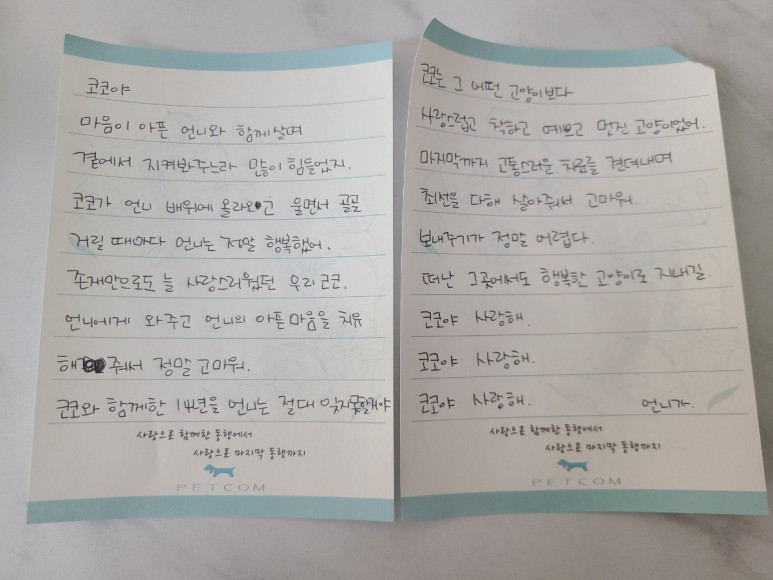 코코야
마음이 아픈 언니와 함께살며
곁에서 지켜봐주느라 많이 힘들었지.
코코가 언니 배위에 올라오고 울면서 골골
거릴 때마다 언니는 정말 행복했어.
존재만으로도 늘 사랑스러웠던 우리 코코.
언니에게 와주고 언니의 아픈 마음을 치유
해줘서 정말 고마워.
코코와 함께한 14년을 언니는 절대 잊지못할거야
사랑으로 함께한 동행에서
사랑으로 마지막 동행까지
PETCOM
코코는 그 어떤 고양이보다
사랑스럽고 착하고 예쁘고 멋진 고양이었어.
마지막까지 고통스러운 치료를 견뎌내며
최선을 다해 살아줘서 고마워.
보내주기가 정말 어렵다.
떠난 그곳에서도 행복한 고양이로 지내길.
코코야 사랑해.
코코야 사랑해.
코코야 사랑해. 언니가.
사랑으로 함께한 동행에서
사랑으로 마지막 동행까지
PETCOM